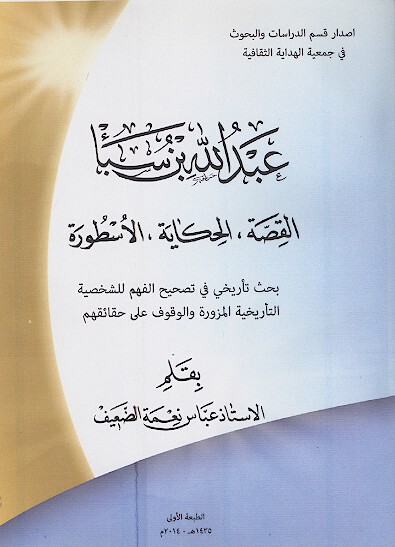 اصدار قسم الدراسات والبحوث
في جمعية الهداية الثقافية
عبد الله بن سبأ
القصة، الحكاية، الأسطورة
بحث تأريخي في تصحيح الفهم للشخصية
التأريخية المزورة والوقوف على حقائقهم
بقلم
الاستاذ عباس نعمة الضعيف
الطبعة الأولى
١٤٣٥هـ - ٢٠١٤م